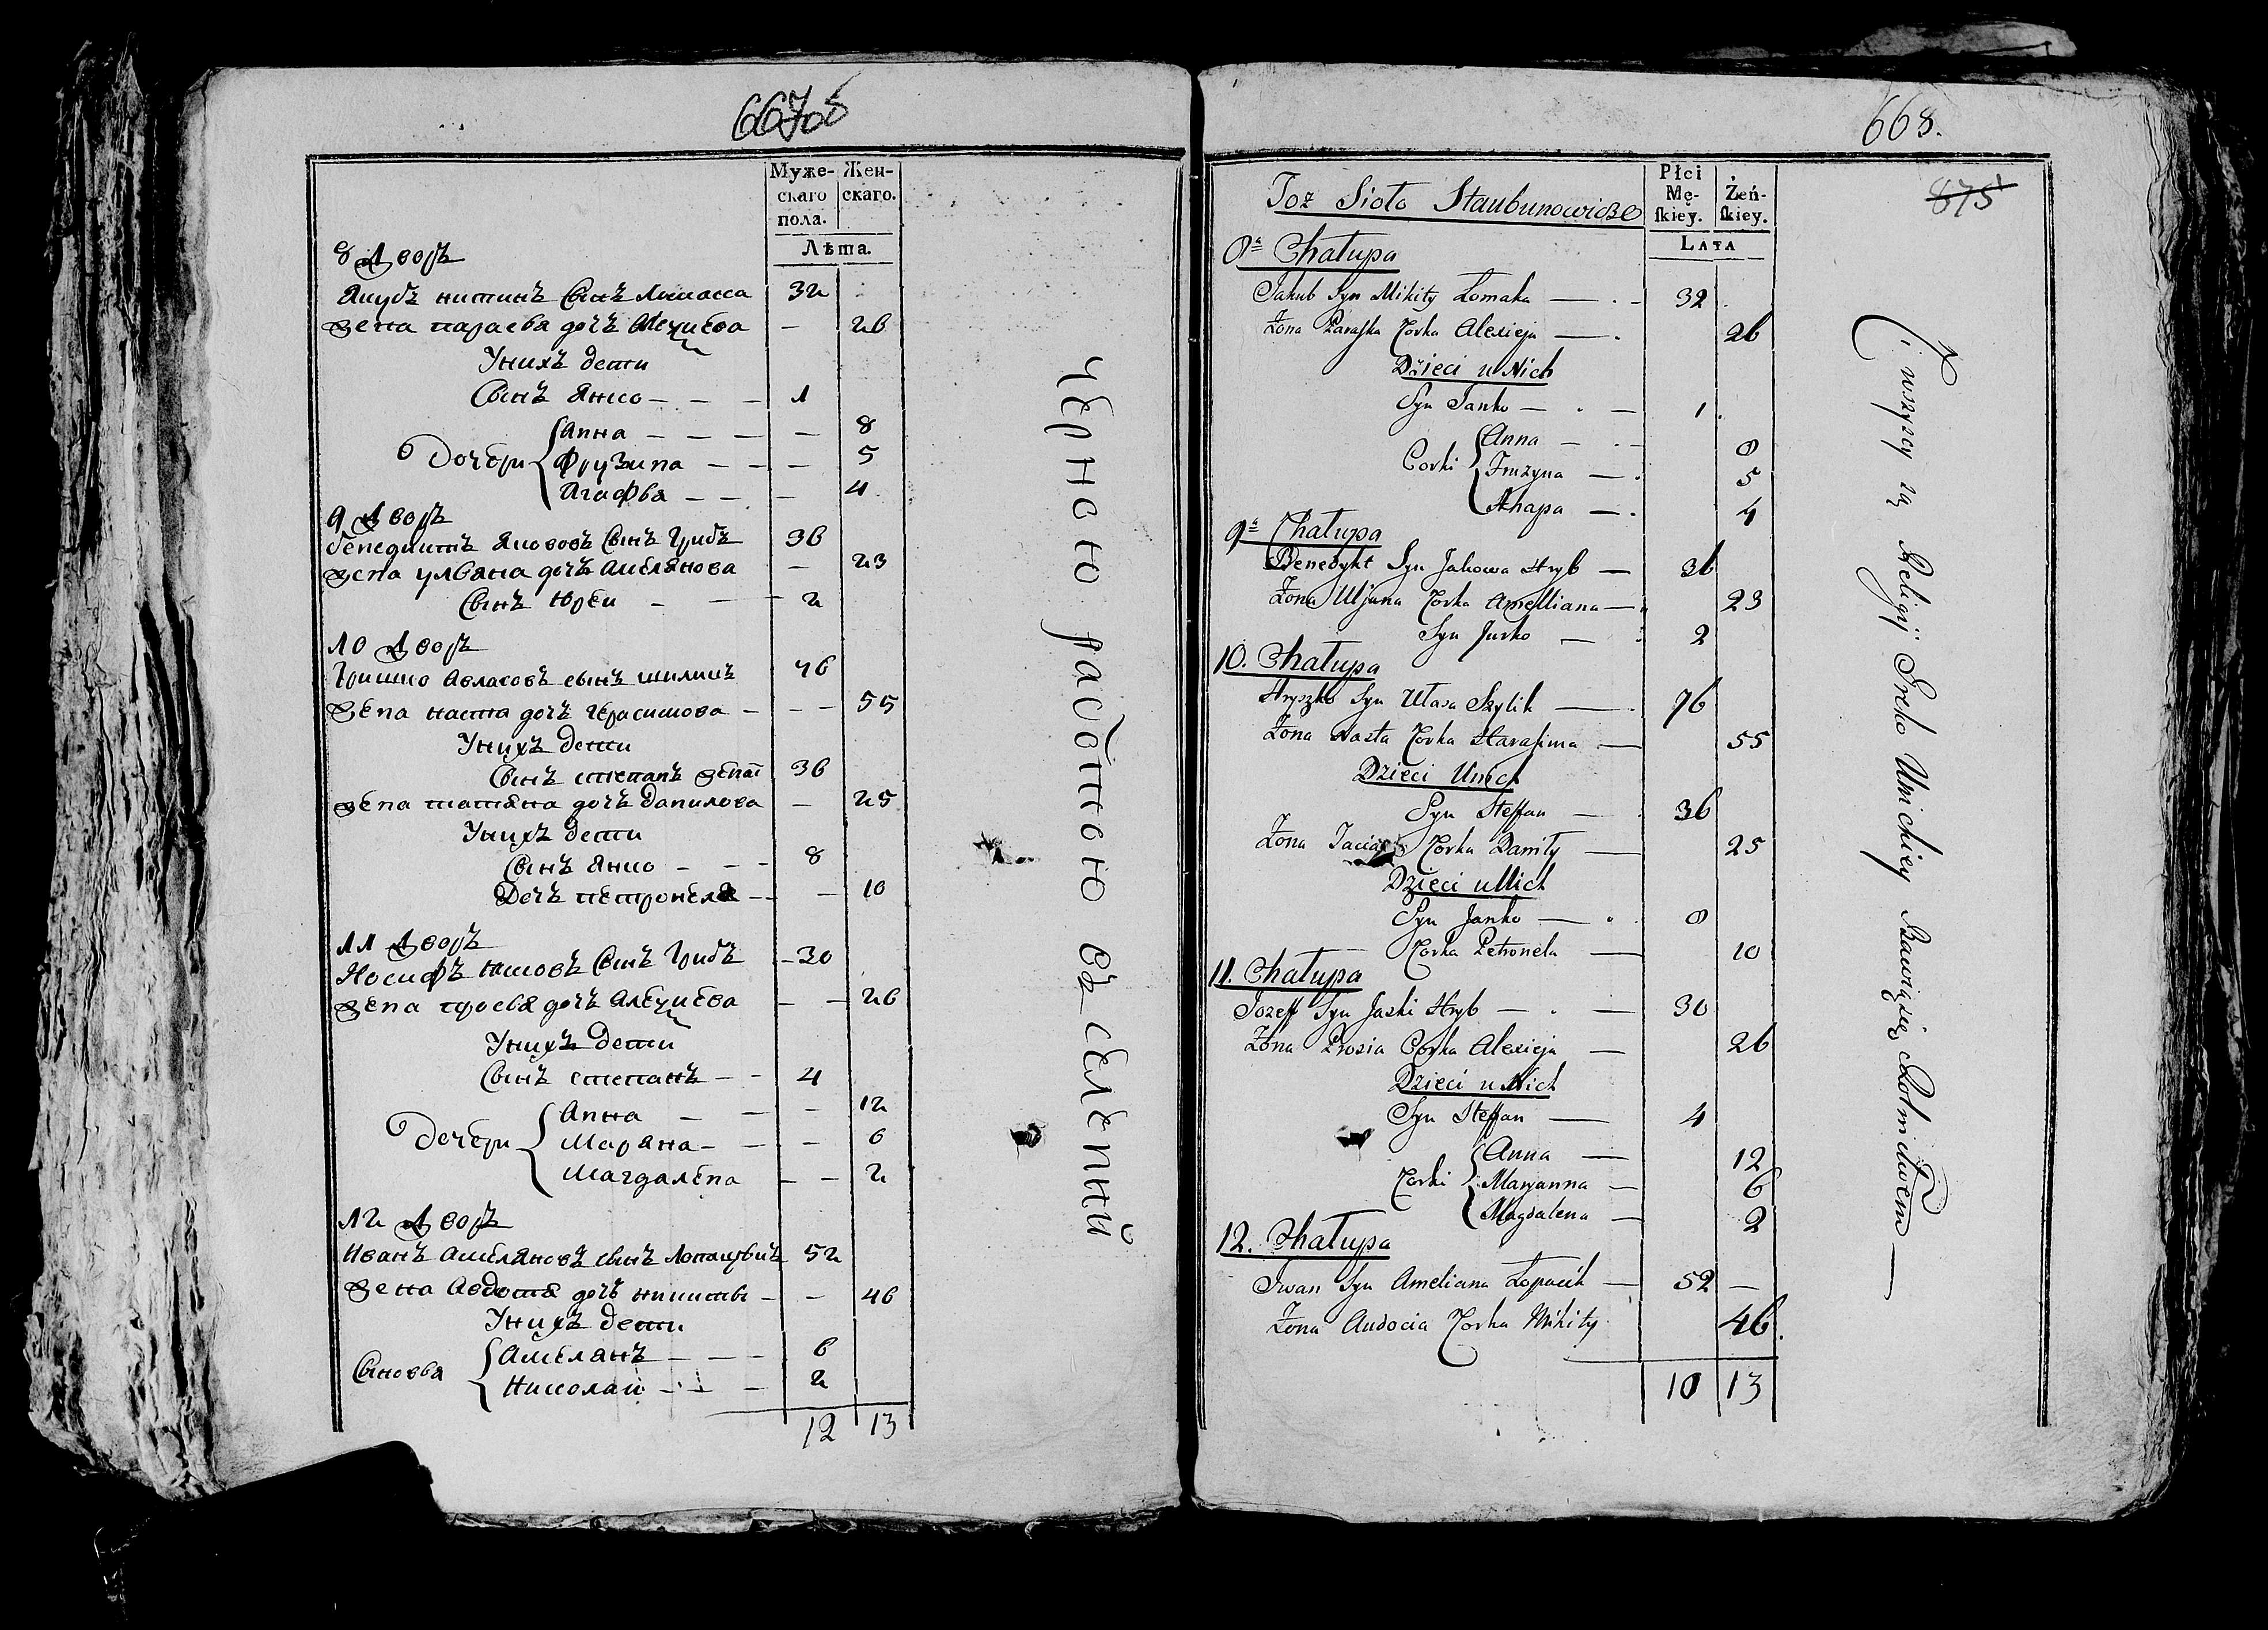 667об
Муже-
скаго
пола.
Жен-
скаго.
Лѣта.
8 Дворъ
Якубъ Никитинъ Сынъ 32
жена параска дочъ Алекѣева — 26
Унихъ дети
Сынъ Янко — — — 1
Дочери
Анна — — — — 8
Фрузина — — — 5
Агафья — — — 4
9 Дворъ
бенедиктъ Якововъ Сынъ Грибъ 36
жена ульяна дочъ Амелянова — 23
Сынъ Юрки — — 2
10 Дворъ
Гришко Авласовъ сынъ шиликъ 76
жена наста дочъ Герасимова — — — 55
Унихъ дети
Сынъ степанъ 36
жена татяна дочъ данилова — 25
Унихъ дети
Сынъ Янко — — — 8
Дочъ петронеля — — — 10
11 Дворъ
Иосифъ Сынъ Грибъ — 30
жена прося дочъ Алекѣева — — 26
Унихъ дети
Сынъ степанъ — — 4
Дочери
Анна — — — 12
Маряна — — — 6
Магдалена — — 2
12 Дворъ
Иванъ Амеляновъ сынъ Лопацикъ 52
жена Авдотя дочъ никиты — — 46
Унихъ дети
Сыновья
Амелянъ — — — 6
Николай — — — 2
12 13
черною работою въ селении
668.
875
Toż Sioło Staubunowicze
Płci
Mę-
skiey.
Żeń-
skiey.
LATA
8ª Chałupa
Jakub Syn Mikity Łomaka — 32
Żona Paraska Corka Alexieja — 26
Dzieci u Nich
Syn Janko — 1
Corki
Anna — 8
Fruzyna — 5
Ahapa — 4
9ª Chałupa
Benedykt Syn Jakowa Hryb — 36
Żona Uljana Corka Amelliana — 23
Syn Jurko — 2
10. Chałupa
Hryszko Syn Ułasa Szylik — 76
Żona Nasta Corka Harasima — 55
Dzieci Unich
Syn Steffan — 36
Żona Tacia Corka Daniły — 25
Dzieci u Nich
Syn Janko — 8
Corka Petronela — 10
11. Chałupa
Jozeff Syn Jaski Hryb — 30
Żona Prosia Corka Alexieja — 26
Dzieci u Nich
Syn Steffan — 4
Corki
Anna — 12
Maryanna — 6
Magdalena — 2
12. Chałupa
Iwan Syn Ameliana Łopacik — 52 —
Żona Audocia Corka Mikity 46.
10 13
Ci wszyscy są Religij Greko Unickiey Bawią się Rolnictwem —